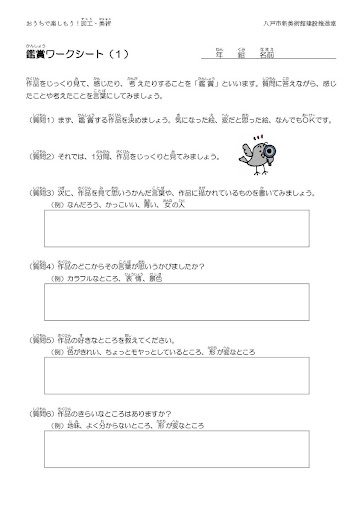 おうちで楽しもう！図工・美術
八戸市新美術館建設推進室
鑑賞ワークシート（１） 年 組 名前
作品をじっくり見て、感じたり、考えたりすることを「鑑賞」といいます。質問に答えながら、感じ
たことや考えたことを言葉にしてみましょう。
（質問1）まず、鑑賞する作品を決めましょう。気になった絵、変だと思った絵、なんでもＯＫです。
（質問2）それでは、1分間、作品をじっくりと見てみましょう。
（質問3）次に、作品を見て思いうかんだ言葉や、作品に描かれているものを書いてみましょう。
（例）なんだろう、かっこいい、青い、女の人
（質問4）作品のどこからその言葉が思いうかびましたか？
（例）カラフルなところ、表情、景色
（質問5）作品の好きなところを教えてください。
（例）色がきれい、ちょっとモヤっとしているところ、形が変なところ
（質問6）作品のきらいなところはありますか？
（例）地味、よく分からないところ、形が変なところ